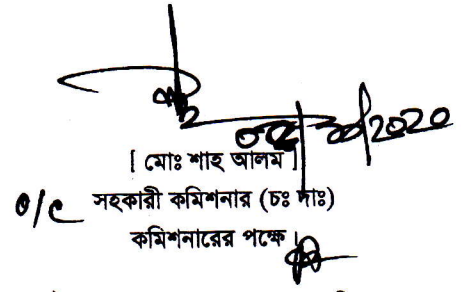 [ মোঃ শাহ আলম ]
০/c সহকারী কমিশনার (চঃ দাঃ)
কমিশনারের পক্ষে।